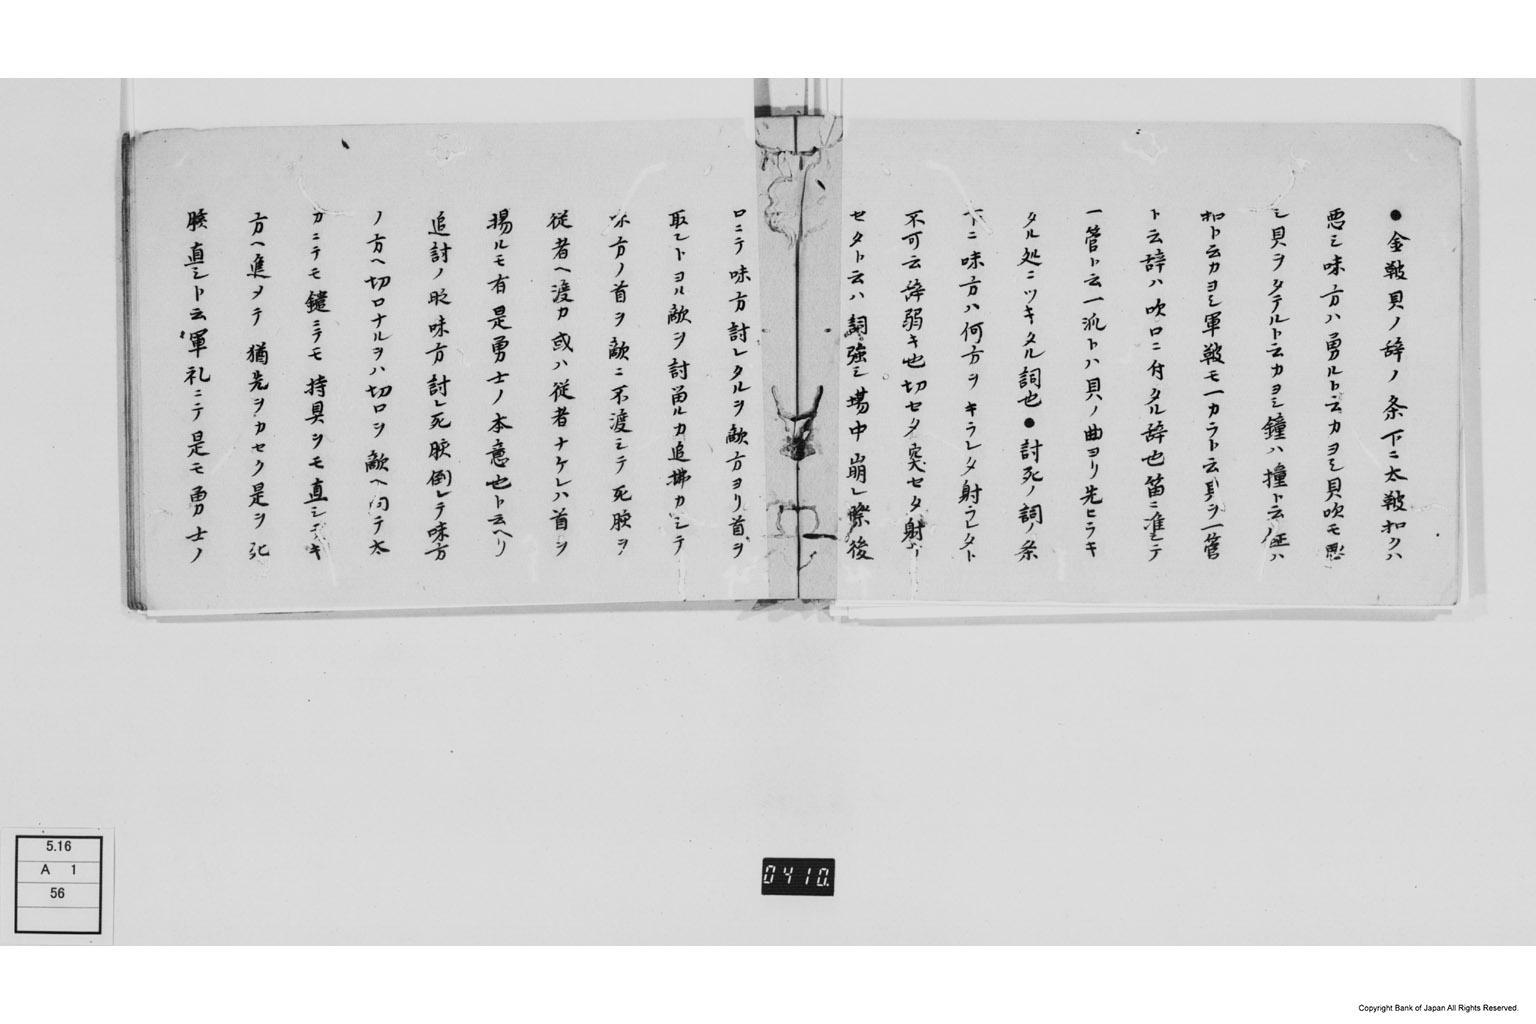 ●金皷貝ノ辞ノ条下ニ太皷扣クハ
悪シ味方ハ勇ルト云カヨシ貝吹モ悪
シ貝ヲタテルト云カヨシ鐘ハ撞ト云ノ
扣ト云カヨシ軍皷モ一カラト云貝ヲ一管
ト云辞ハ吹口ニ付タル辞也笛ニ准シテ
一管ト云一派トハ貝ノ曲ヨリ先ヒラキ
タル処ニツキタル詞也●討死ノ詞ノ条
下ニ味方ハ何方ヲキラレタ射ラレタト
不可云辞弱キ也切セタ突セタ射
セタト云ハ詞強シ場中崩レ際後
口ニテ味方討レタルヲ敵方ヨリ首ヲ
取ントヨル敵ヲ討畄ルカ追拂カシテ
味方ノ首ヲ敵ニ不渡シテ死骸ヲ
従者ヘ渡カ或ハ従者ナケレハ首ヲ
揚ルモ有是勇士ノ本意也ト云ヘリ
追討ノ時味方討レ死骸倒レテ味方
ノ方ヘ切口ナルヲハ切口ヲ敵ヘ向テ太
刀ニテモ鑓ニテモ持具ヲモ直シ
方ヘ進メテ猶先ヲカセク是ヲ死
骸直シト云軍礼ニテ是モ勇士ノ
5.16
A 1
56
0410.
Copyright Bank of Japan All Rights Reserved.